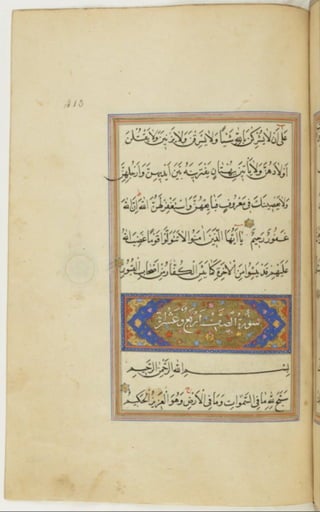 ٤١٥
على أن لا يشركن بالله شيئا ولا يسرقن ولا يزنين ولا يقتلن
أولادهن ولا يأتين ببهتان يفترينه بين أيديهن وأرجلهن
ولا يعصينك في معروف فبايعهن واستغفر لهن الله إن الله
غفور رحيم يا أيها الذين آمنوا لا تتولوا قوما غضب الله
عليهم قد يئسوا من الآخرة كما يئس الكفار من أصحاب القبور
سورة الصف أربع عشر
بسم الله الرحمن الرحيم
سبح لله ما في السموات وما في الأرض وهو العزيز الحكيم